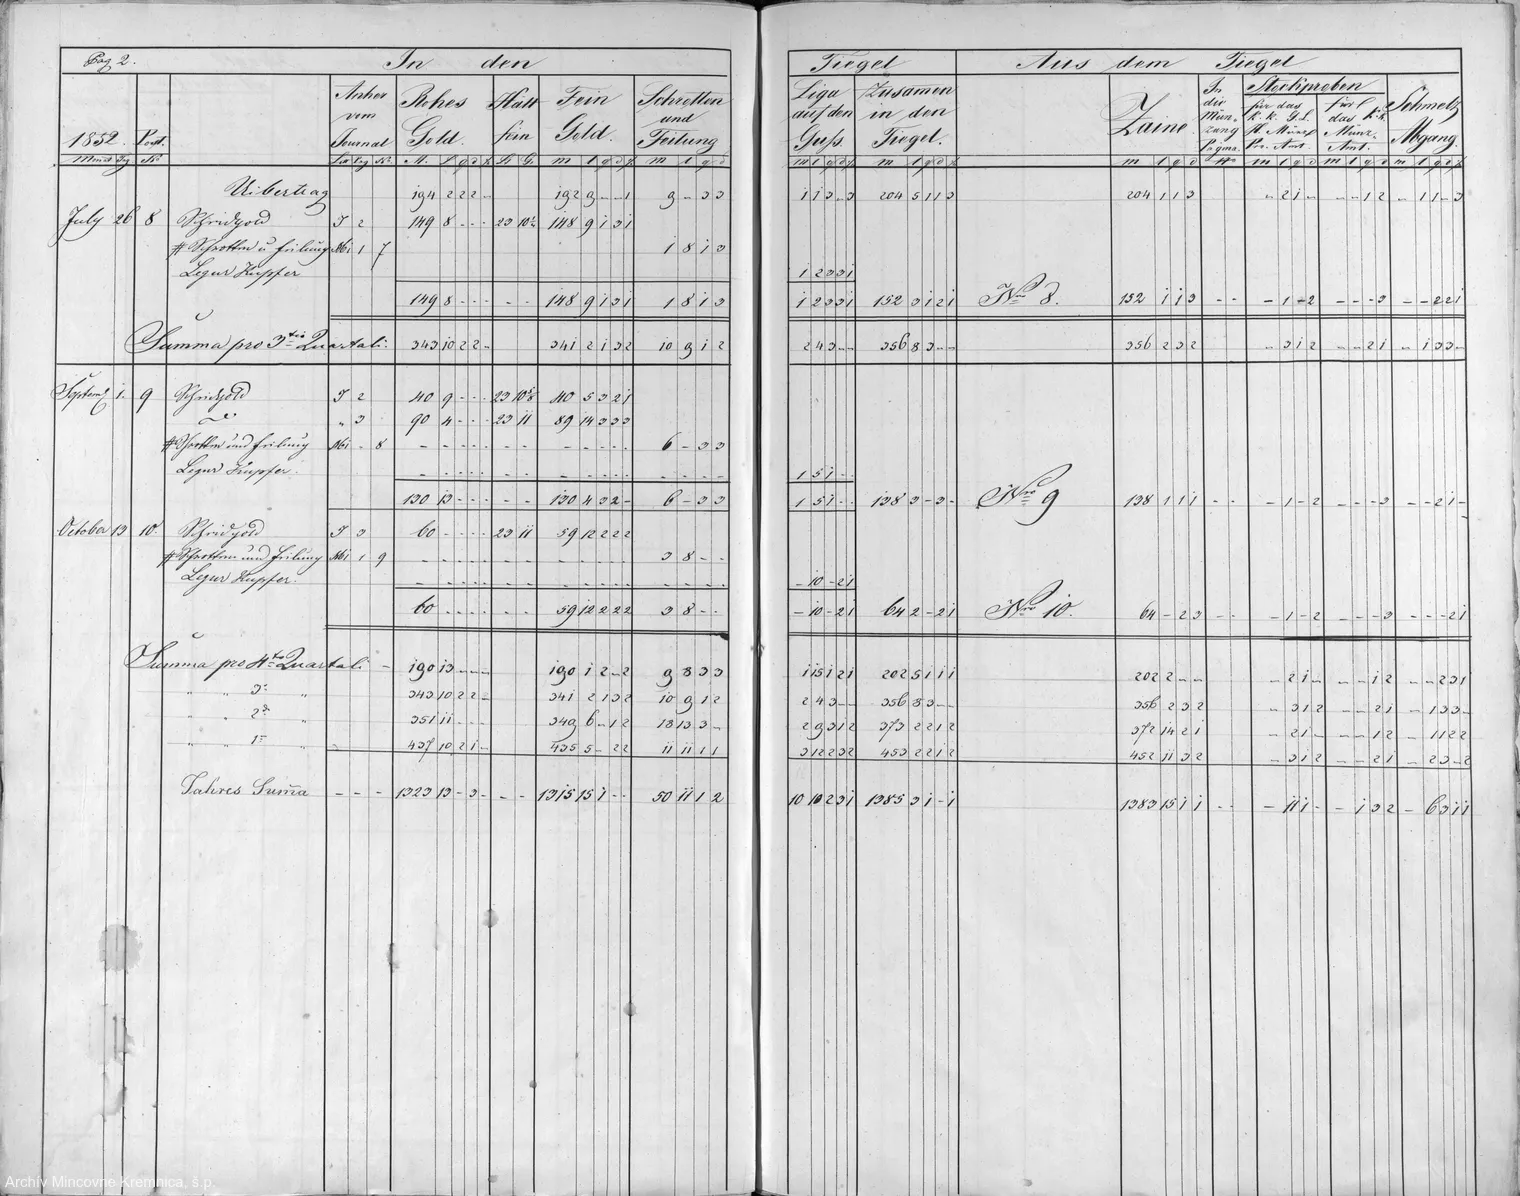 Pag 2. In den Tiegel Aus dem Tiegel
1852. Post. Anher vom Journal Rohes Gold. Halt fein Fein Gold. Schretten und Feilung Liga auf den Guss. Zusamen in den Tiegel. Zaine. In die Münzung Pagina Stockproben für das k. k. Münz Amt. für das Münz Amt. Schmelz Abgang.
Uibertrag 194 2 2 2 - 192 9 - - 1 9 - 3 3 1 1 3 - 3 204 5 1 1 3 204 1 1 3 - 2 1 - - - 1 2 - 1 1 - 3
July 26 8 Schridgold J 2 149 8 - - - 23 10 148 9 1 3 1
# Schrotten u Feilung 1 7 1 8 1 3
Legur Kupfer 1 2 3 3 1
149 8 - - - - - 148 9 1 3 1 1 8 1 3 1 2 3 3 1 152 3 1 2 1 Nro 8. 152 1 1 3 - - - 1 - 2 - - - 3 - - 2 2 1
Summa pro 3tio Quartali. 343 10 2 2 - 341 2 1 3 2 10 9 1 2 2 4 3 - - 356 8 3 - - 356 2 3 2 - 3 1 2 - - 2 1 - 1 3 3 -
Septem 1. 9 Schridgold J 2 40 9 - - - 23 10 40 5 3 2 1
do " 3 90 4 - - - 23 11 89 14 3 3 3
# Schrotten und Feilung - 8 6 - 3 3
Legur Kupfer. 1 5 1 - -
130 13 - - - - - 130 4 3 2 - 6 - 3 3 1 5 1 - - 138 3 - 3 - Nro 9 138 1 1 1 - - - 1 - 2 - - - 3 - - 2 1 -
October 13 10. Schridgold J 3 60 - - - - 23 11 59 12 2 2 2
# Schrotten und Feilung 1 9 3 8 - -
Legur Kupfer. - 10 - 2 1
60 - - - - - - 59 12 2 2 2 3 8 - - - 10 - 2 1 64 2 - 2 1 Nro 10. 64 - 2 3 - - - 1 - 2 - - - 3 - - - 2 1
Summa pro 4to Quartali - 190 13 - - - 190 1 2 - 2 9 8 3 3 1 15 1 2 1 202 5 1 1 1 202 2 - - - 2 1 - - - 1 2 - - 2 3 1
" " 3 " 343 10 2 2 - 341 2 1 3 2 10 9 1 2 2 4 3 - - 356 8 3 - - 356 2 3 2 - 3 1 2 - - 2 1 - 1 3 3 -
" " 2 " 351 11 - - - 349 6 - 1 2 18 13 3 - 2 9 3 1 2 373 2 2 1 2 372 14 2 1 - 2 1 - - - 1 2 - 1 1 2 2
" " 1 " 437 10 2 1 - 435 5 - 2 2 11 11 1 1 3 12 2 3 2 453 2 2 1 2 452 11 3 2 - 3 1 2 - - 2 1 - 2 3 - 2
Jahres Summa - - - 1323 13 - 3 - - - 1315 15 1 - - 50 11 1 2 10 10 2 3 1 1385 3 1 - 1 1383 15 1 1 - - - 11 1 - - 1 3 2 - 6 3 1 1
Archív Mincovne Kremnica, š.p.